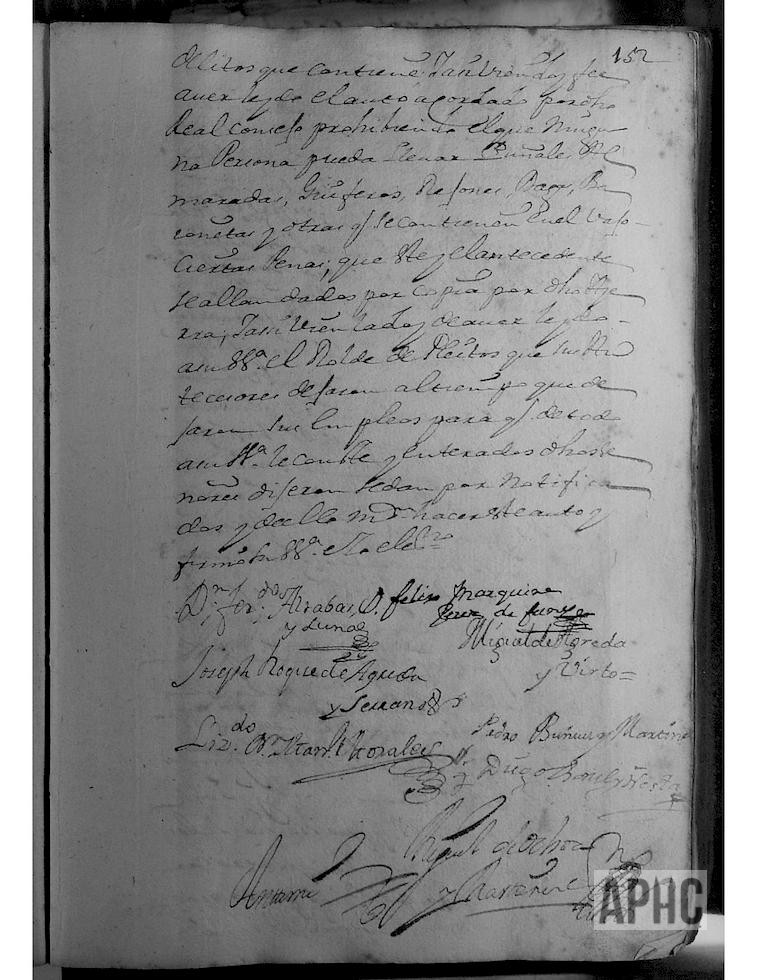 152
delitos que contiene; Tambien doy fee
aver leydo el auto acordado por dho
Real Consejo prohibiendo el que Ningu
na Persona pueda llevar Puñales Al
maradas, Giuferos, Rejones, Dagas, Ba
ionetas y otras q se contienen en el vajo
ciertas Penas; que este y el antecedente
se allan dados por copia por dho
Tambien la doy de aver leydo
a su SSª. el Rolde de Pleitos que sus An
tecesores dejaron al tiempo que de
jaron sus Empleos para q de todo
a su SSª. le conste y enterados dhos Se
nores dijeron se dan por Notifica
dos y de ello mdo. hacer este auto y
firmo su SSª. el
Dn. Ferdo. Alrabas, D. felix Marquina
y Luna
Miguel de Moreda
y Virto
Joseph Roque de Agreda
y Serrano
Lizdo. Dn. Morales
Pedro Bunuel y Martine
Diego
Miguel de Ochoa
y Martinez
Antemi
APHC